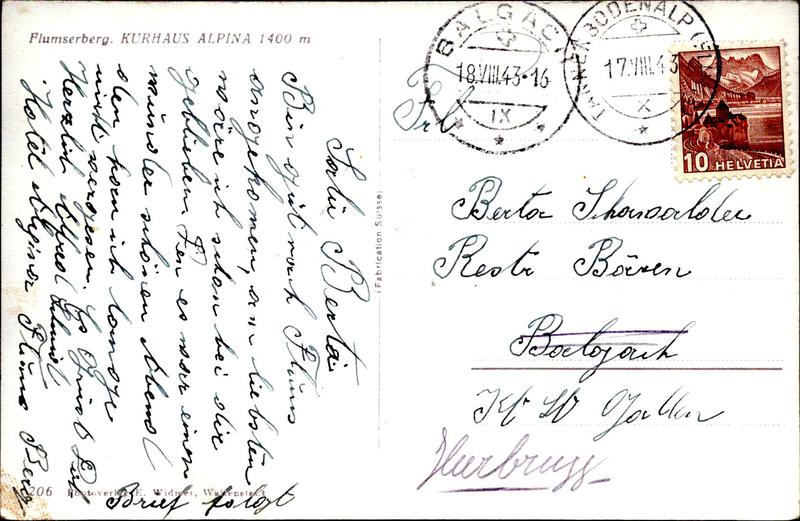 Flumserberg. KURHAUS ALPINA 1400 m
Berta
Bin gut nach Flums
angekommen, am liebsten
wäre ich schon bei dir
geblieben. Den es war einen
schönen Abend
den kann ich lange
nicht vergessen. Es grüsst Dich
Herzlich Alfred
Hotel Alpina Flums Berg
Brief folgt
206 Photoverlag E. Widmer, Walenstadt
(Fabrication Suisse)
BALGACH
18.VIII.43-16
IX
TANNENBODENALP
17.VIII.43
X
10 HELVETIA
Frl
Berta
Restr Bären
Balgach
Kt St Gallen
Heerbrugg